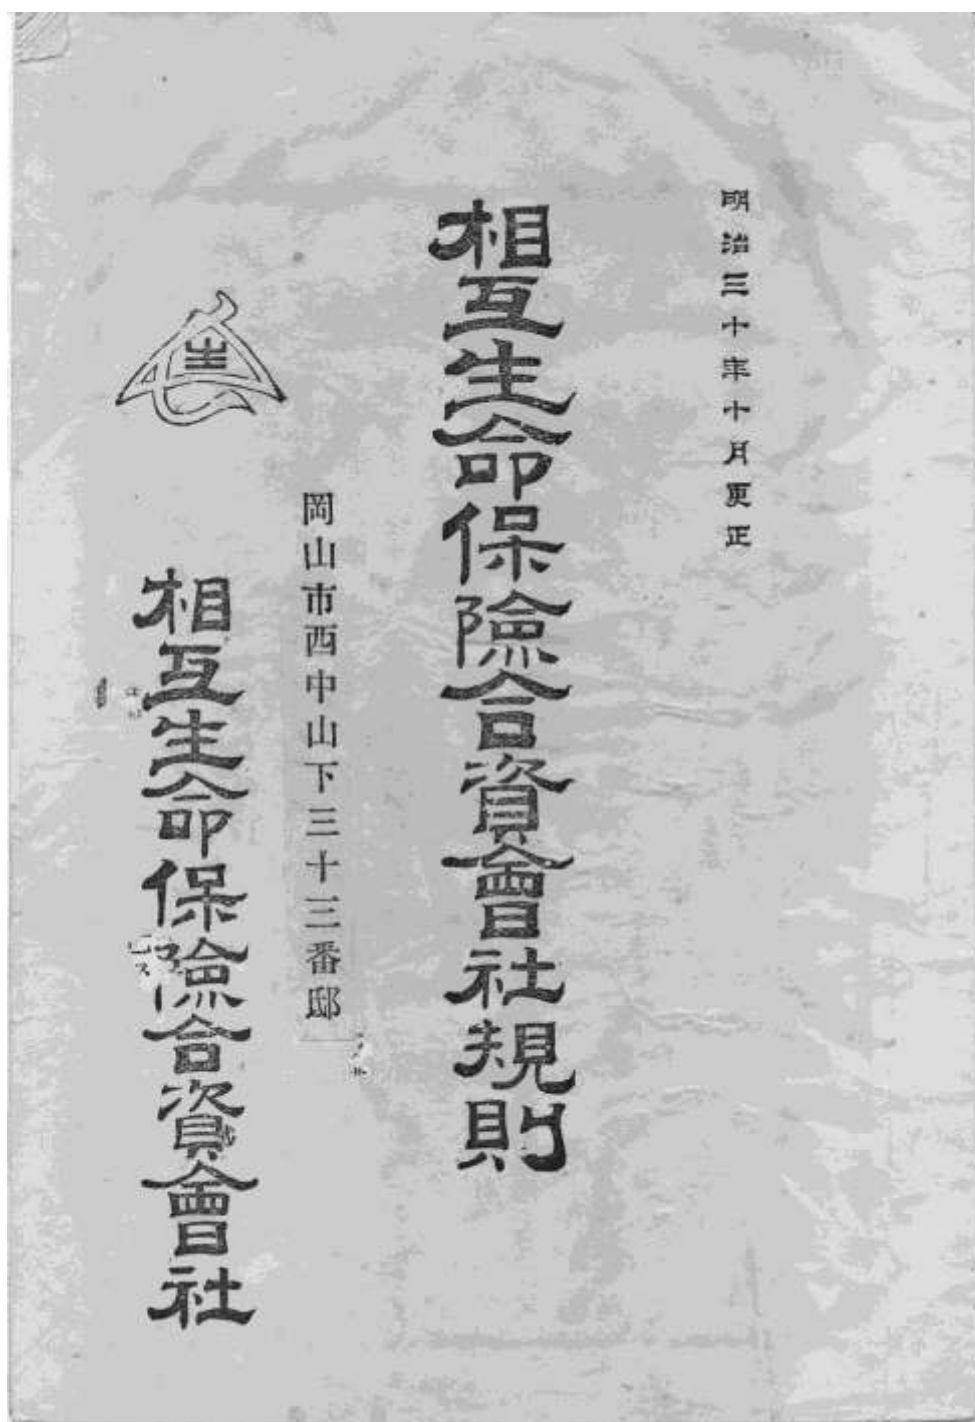 明治三十年十月更正
相互生命保險合資會社規則
岡山市西中山下三十三番邸
生
相互生命保險合資會社